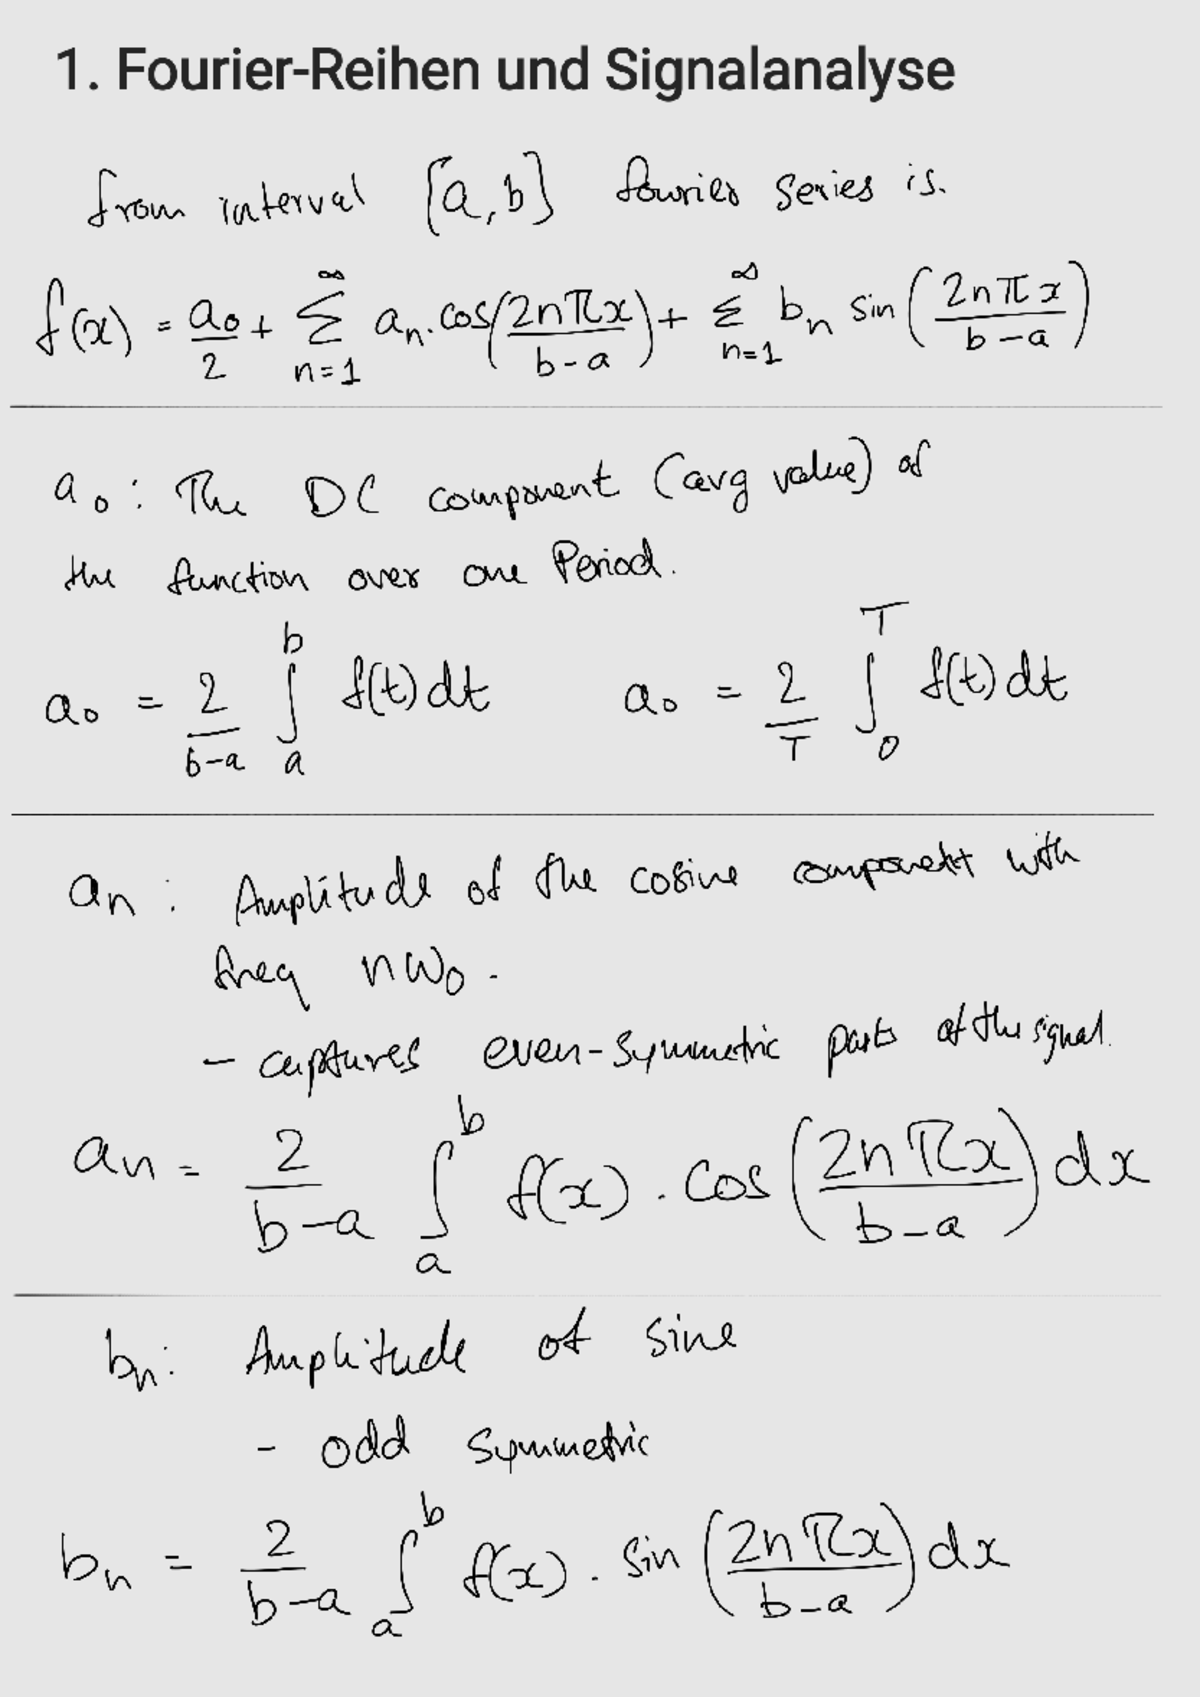 1. Fourier-Reihen und Signalanalyse
from interval [a,b] fourier series is.
f(x) = a₀/2 + ∑_{n=1}^{∞} aₙ.cos(2nπx/(b-a)) + ∑_{n=1}^{∞} bₙ sin(2nπx/(b-a))
a₀: The DC component (avg value) of
the function over one Period.
a₀ = 2/(b-a) ∫_a^b f(t) dt a₀ = 2/T ∫_0^T f(t) dt
aₙ: Amplitude of the cosine component with
freq nω₀.
- captures even-symmetric parts of the signal.
aₙ = 2/(b-a) ∫_a^b f(x) . cos(2nπx/(b-a)) dx
bₙ: Amplitude of sine
- odd symmetric
bₙ = 2/(b-a) ∫_a^b f(x) . sin(2nπx/(b-a)) dx